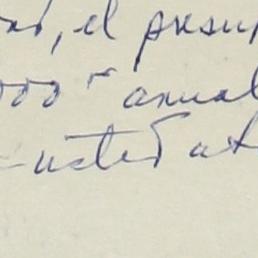 , el presu
000 " anual
usted at